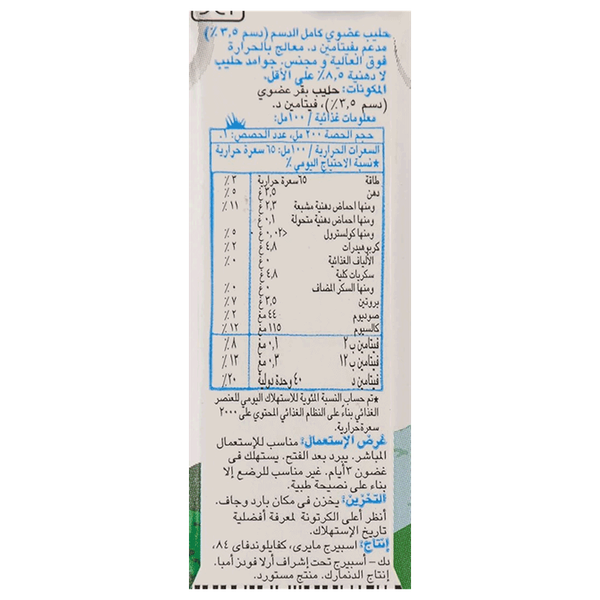 حليب عضوي كامل الدسم (دسم ٣,٥٪)
مدعم بفيتامين د. معالج بالحرارة
فوق العالية و مجنس. جوامد حليب
لا دهنية ٨,٥٪ على الأقل.
المكونات: حليب بقر عضوي
(دسم ٣,٥٪)، فيتامين د.
معلومات غذائية /١٠٠مل:
حجم الحصة ٢٠٠ مل، عدد الحصص: ١.
السعرات الحرارية /١٠٠مل: ٦٥ سعرة حرارية
*نسبة الاحتياج اليومي ٪
طاقة ٦٥سعرة حرارية ٢٪
دهن ٣,٥غ ٥٪
ومنها احماض دهنية مشبعة ٢,٣غ ١١٪
ومنها احماض دهنية متحولة ٠,١غ
ومنها كولسترول <٠,٠٢غ ٥٪
كربوهيدرات ٤,٨غ ٢٪
الألياف الغذائية ٠غ ٠٪
سكريات كلية ٤,٨غ
ومنها السكر المضاف ٠غ ٠٪
بروتين ٣,٥غ ٧٪
صوديوم ٤٤ مغ ٢٪
كالسيوم ١١٥ مغ ١٢٪
فيتامين ب٢ ٠,١ مغ ٨٪
فيتامين ب١٢ ٠,٣ مغ ١٣٪
فيتامين د ٤٠ وحدة دولية ٢٠٪
*تم حساب النسبة المئوية للاستهلاك اليومي للعنصر
الغذائي بناءً على النظام الغذائي المحتوي على ٢٠٠٠
سعرة حرارية.
غرض الإستعمال: مناسب للإستعمال
المباشر. يبرد بعد الفتح. يستهلك في
غضون ٣أيام. غير مناسب للرضع إلا
بناء على نصيحة طبية.
التخزين: يخزن في مكان بارد وجاف.
أنظر أعلى الكرتونة لمعرفة أفضلية
تاريخ الإستهلاك.
إنتاج: اسبيرج مايري، كفايلوندفاي ٨٤،
دك – أسبيرج تحت إشراف أرلا فودز أمبا.
إنتاج الدنمارك. منتج مستورد.